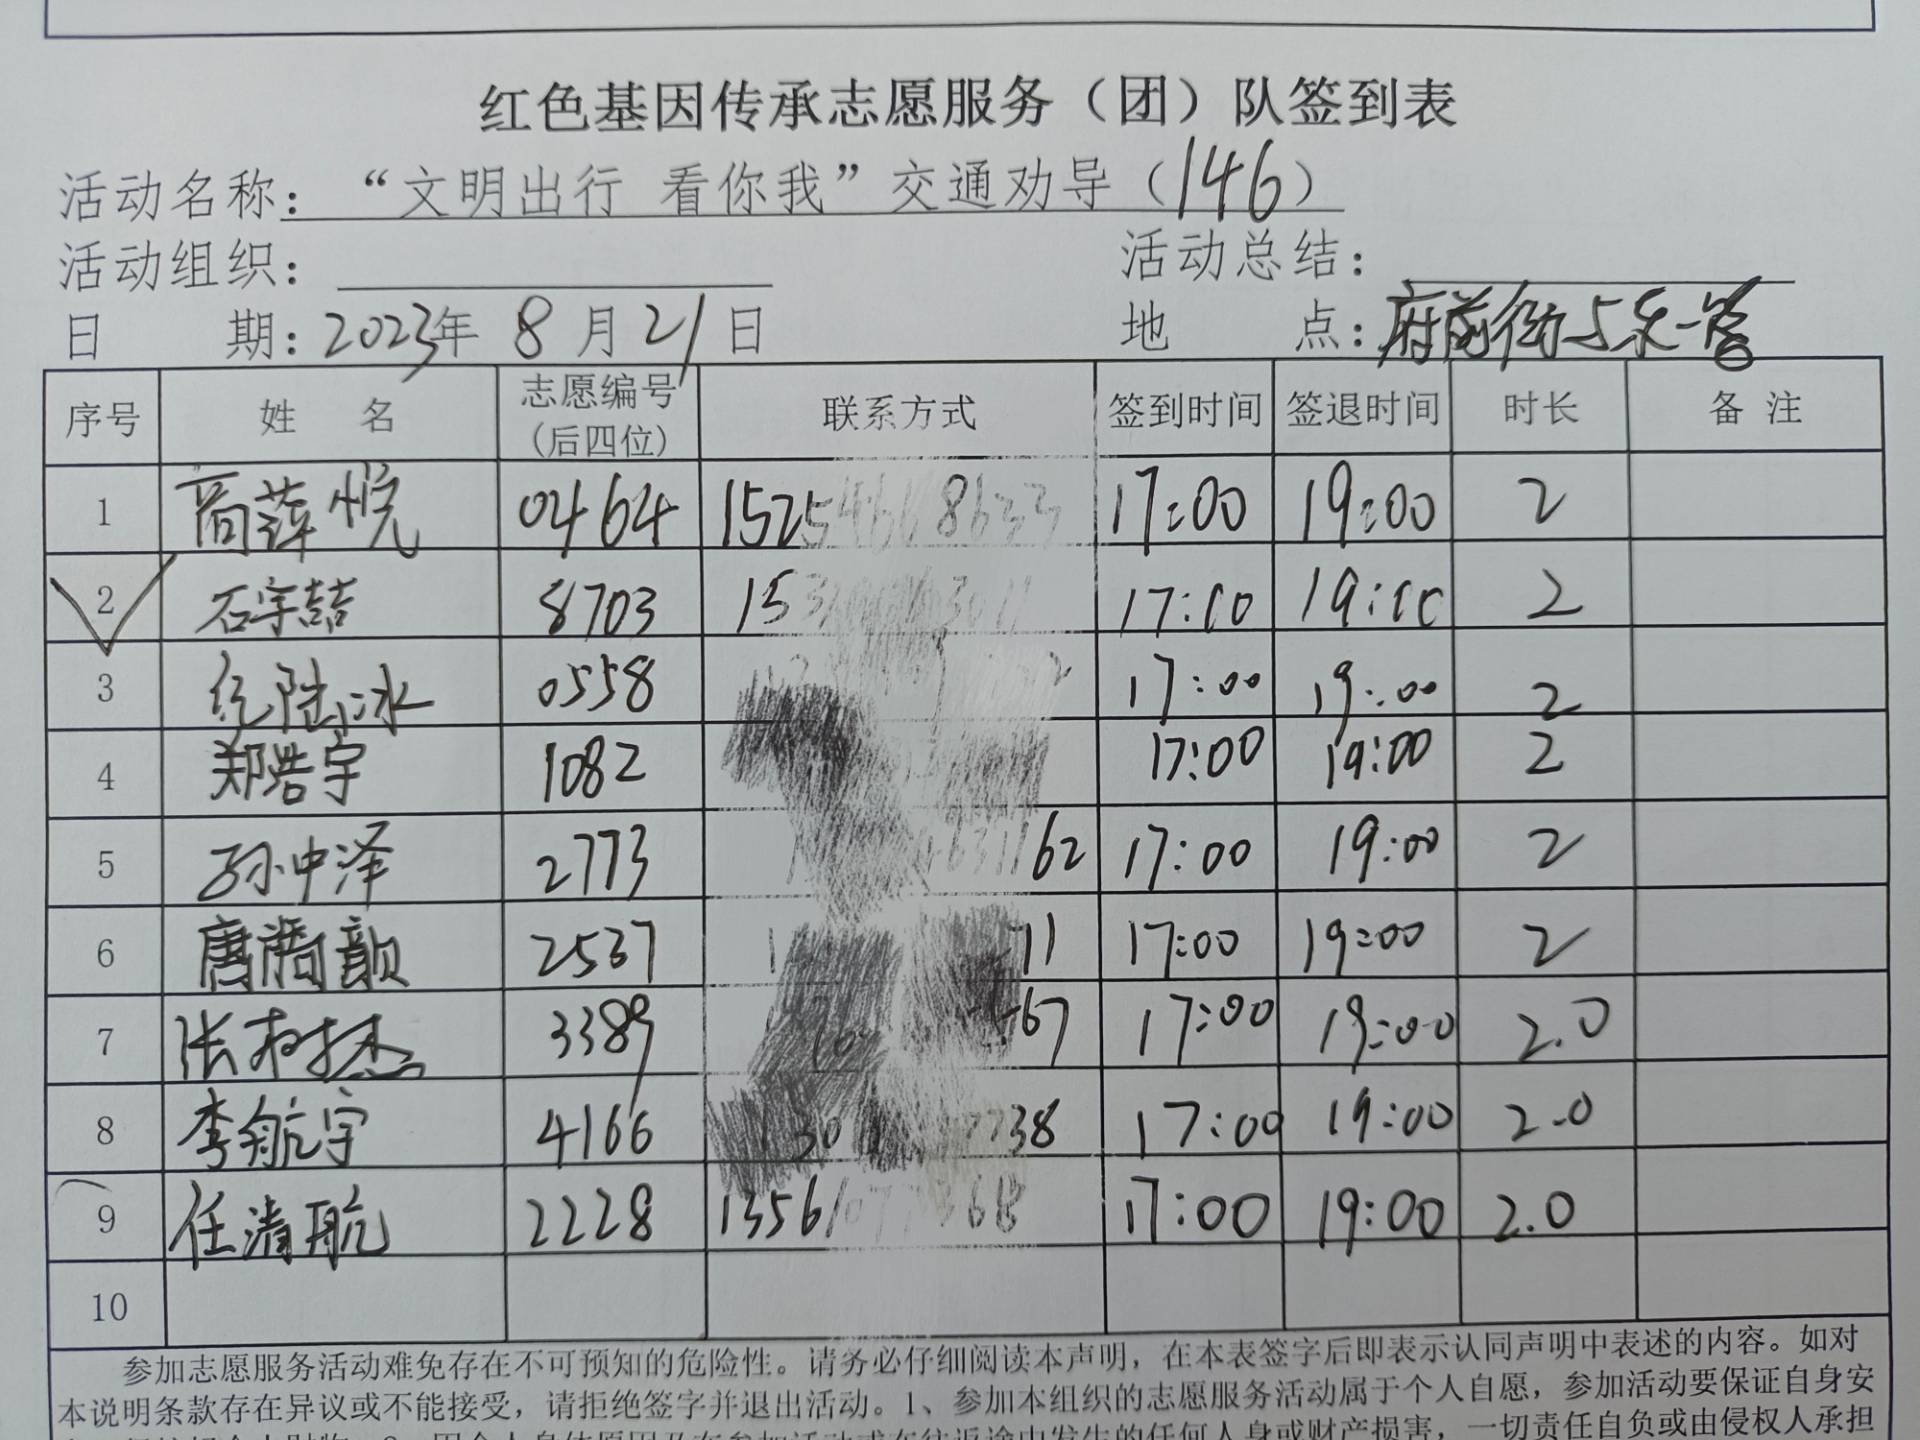 红色基因传承志愿服务（团）队签到表
活动名称：“文明出行 看你我”交通劝导（146）
活动组织： 活动总结：
日 期：2023年 8 月 21 日 地 点：府前街与乐一
序号 姓 名 志愿编号（后四位） 联系方式 签到时间 签退时间 时长 备 注
1 商萍悦 0464 17:00 19:00 2
2 石宇喆 8703 17:00 19:00 2
3 纪陆冰 0558 17:00 19:00 2
4 郑浩宇 1082 17:00 19:00 2
5 孙中泽 2773 62 17:00 19:00 2
6 唐 韻 2537 11 17:00 19:00 2
7 张树杰 3389 67 17:00 19:00 2.0
8 李航宇 4166 38 17:00 19:00 2.0
9 任清航 2228 17:00 19:00 2.0
10
参加志愿服务活动难免存在不可预知的危险性。请务必仔细阅读本声明，在本表签字后即表示认同声明中表述的内容。如对
本说明条款存在异议或不能接受，请拒绝签字并退出活动。1、参加本组织的志愿服务活动属于个人自愿，参加活动要保证自身安
一切责任自负或由侵权人承担